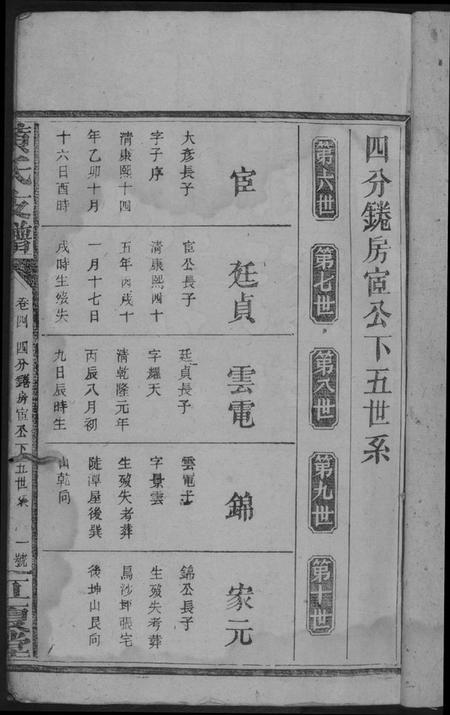 四分錈房宦公下五世系
第六世
第七世
第八世
第九世
第十世
宦
大彥長子
字子序
清康熙十四
年乙卯十月
十六日酉時
廷貞
宦公長子
清康熙四十
五年丙戌十
一月十七日
戌時生歿失
雲電
廷貞長子
字耀天
清乾隆元年
丙辰八月初
九日辰時生
錦
雲電士
字景雲
生歿失考葬
陡潭屋後巽
山乾向
家元
錦公長子
生歿失考葬
烏沙坪張宅
後坤山艮向
黃氏支譜
卷四
四分錈房宦公下五世系
一號